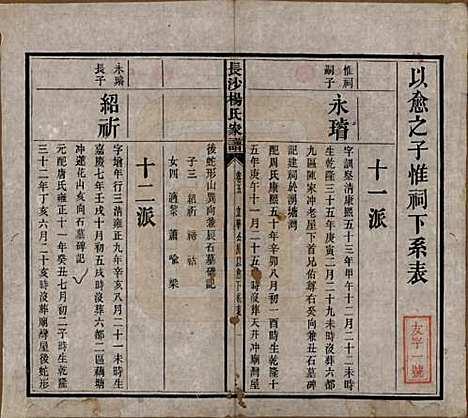 以愈之子惟祠下系表
十一派
惟祠
嗣子
永璿
字訓察清康熙五十三年甲午十二月二十二未時
生乾隆三十五年庚寅二月二十九未時沒葬六都
九區陳宋沖老屋下首周尹氏右癸向兼丑石墓碑
記建祠於湧塘灣
配周氏康熙五十年辛卯八月初一酉時生乾隆十
五年庚午十一月二十五
時沒葬天井沖廟灣屋
長沙楊氏家譜
卷五
後蛇形山巽向兼辰石墓碑記
子三
紹祈
祷
祜
女四
適黎
蕭
喻
梁
十二派
永璿
長子
紹祈
字增年行三清雍正九年辛亥八月二十一未時生
嘉慶七年壬戌十月初五戌時沒葬六都二區藕塘
沖蓮花山亥向右石墓碑記
元配唐氏雍正十一年癸丑七月初二子時生乾隆
三十二年丁亥六月二十亥時沒葬廟灣屋後蛇形
友字一號